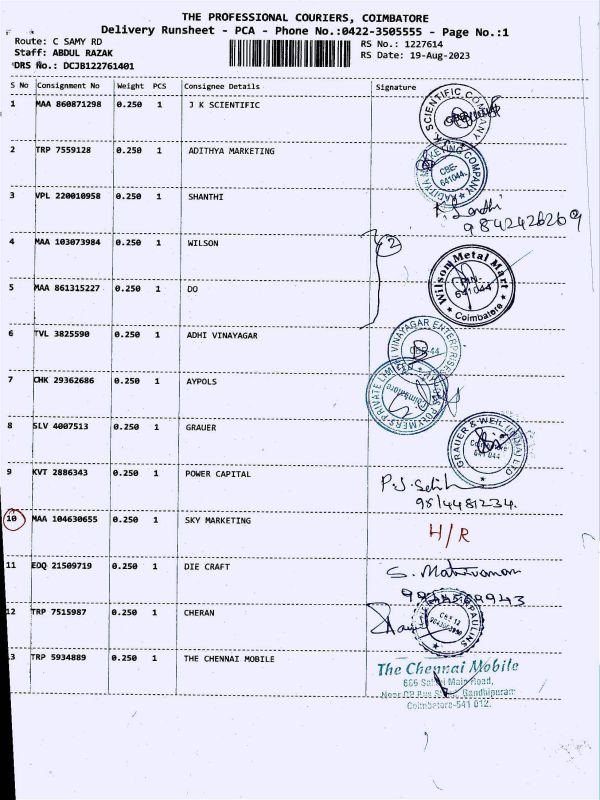 THE PROFESSIONAL COURIERS, COIMBATORE
Delivery Runsheet - PCA - Phone No.:0422-3505555 - Page No.:1
Route: C SAMY RD
RS No.: 1227614
Staff: ABDUL RAZAK
RS Date: 19-Aug-2023
DRS No.: DCJB122761401
S No Consignment No Weight PCS Consignee Details Signature
1 MAA 860871298 0.250 1 J K SCIENTIFIC
2 TRP 7559128 0.250 1 ADITHYA MARKETING
CBE-
641044.
3 VPL 220010958 0.250 1 SHANTHI
9842426269
4 MAA 103073984 0.250 1 WILSON
2
5 MAA 861315227 0.250 1 DO
Wilson Metal Mart
641044
Coimbatore
6 TVL 3825590 0.250 1 ADHI VINAYAGAR
VINAYAGAR ENTERPRISES
7 CHK 29362686 0.250 1 AYPOLS
POLYMERS PRIVATE LIMITED
Coimbatore
8 SLV 4007513 0.250 1 GRAUER
GRAUER & WEIL (INDIA) LTD
641 044
9 KVT 2886343 0.250 1 POWER CAPITAL
9814481234.
10 MAA 104630655 0.250 1 SKY MARKETING
H/R
11 EDQ 21509719 0.250 1 DIE CRAFT
12 TRP 7515987 0.250 1 CHERAN
13 TRP 5934889 0.250 1 THE CHENNAI MOBILE
The Chennai Mobile
Main Road,
Gandhipuram
Coimbatore-641 012.